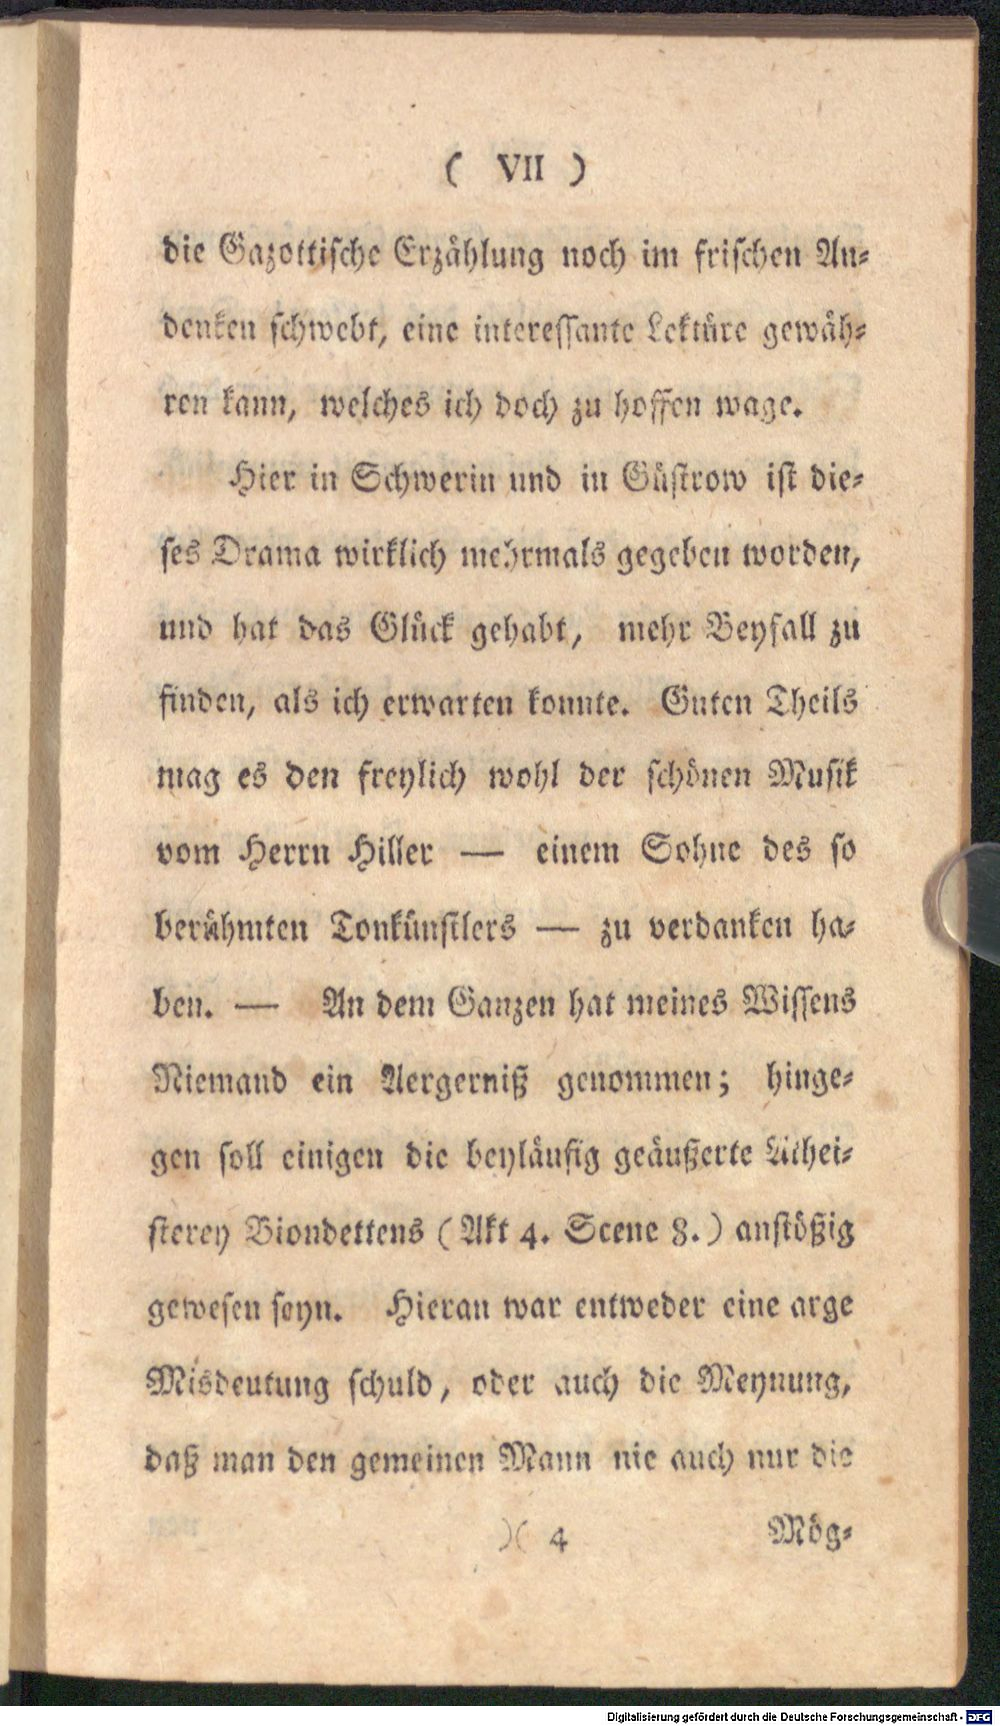 ( VII )
die Gazottische Erzählung noch im frischen An-
denken schwebt, eine interessante Lektüre gewäh-
ren kann, welches ich doch zu hoffen wage.
Hier in Schwerin und in Güstrow ist die-
ses Drama wirklich mehrmals gegeben worden,
und hat das Glück gehabt, mehr Beyfall zu
finden, als ich erwarten konnte. Guten Theils
mag es den freylich wohl der schönen Musik
vom Herrn Hiller — einem Sohne des so
berühmten Tonkünstlers — zu verdanken ha-
ben. — An dem Ganzen hat meines Wissens
Niemand ein Aergerniß genommen; hinge-
gen soll einigen die beyläufig geäußerte Athei-
sterey Biondettens (Akt 4. Scene 8.) anstößig
gewesen seyn. Hieran war entweder eine arge
Misdeutung schuld, oder auch die Meynung,
daß man den gemeinen Mann nie auch nur die
)( 4 Mög-
Digitalisierung gefördert durch die Deutsche Forschungsgemeinschaft - DFG